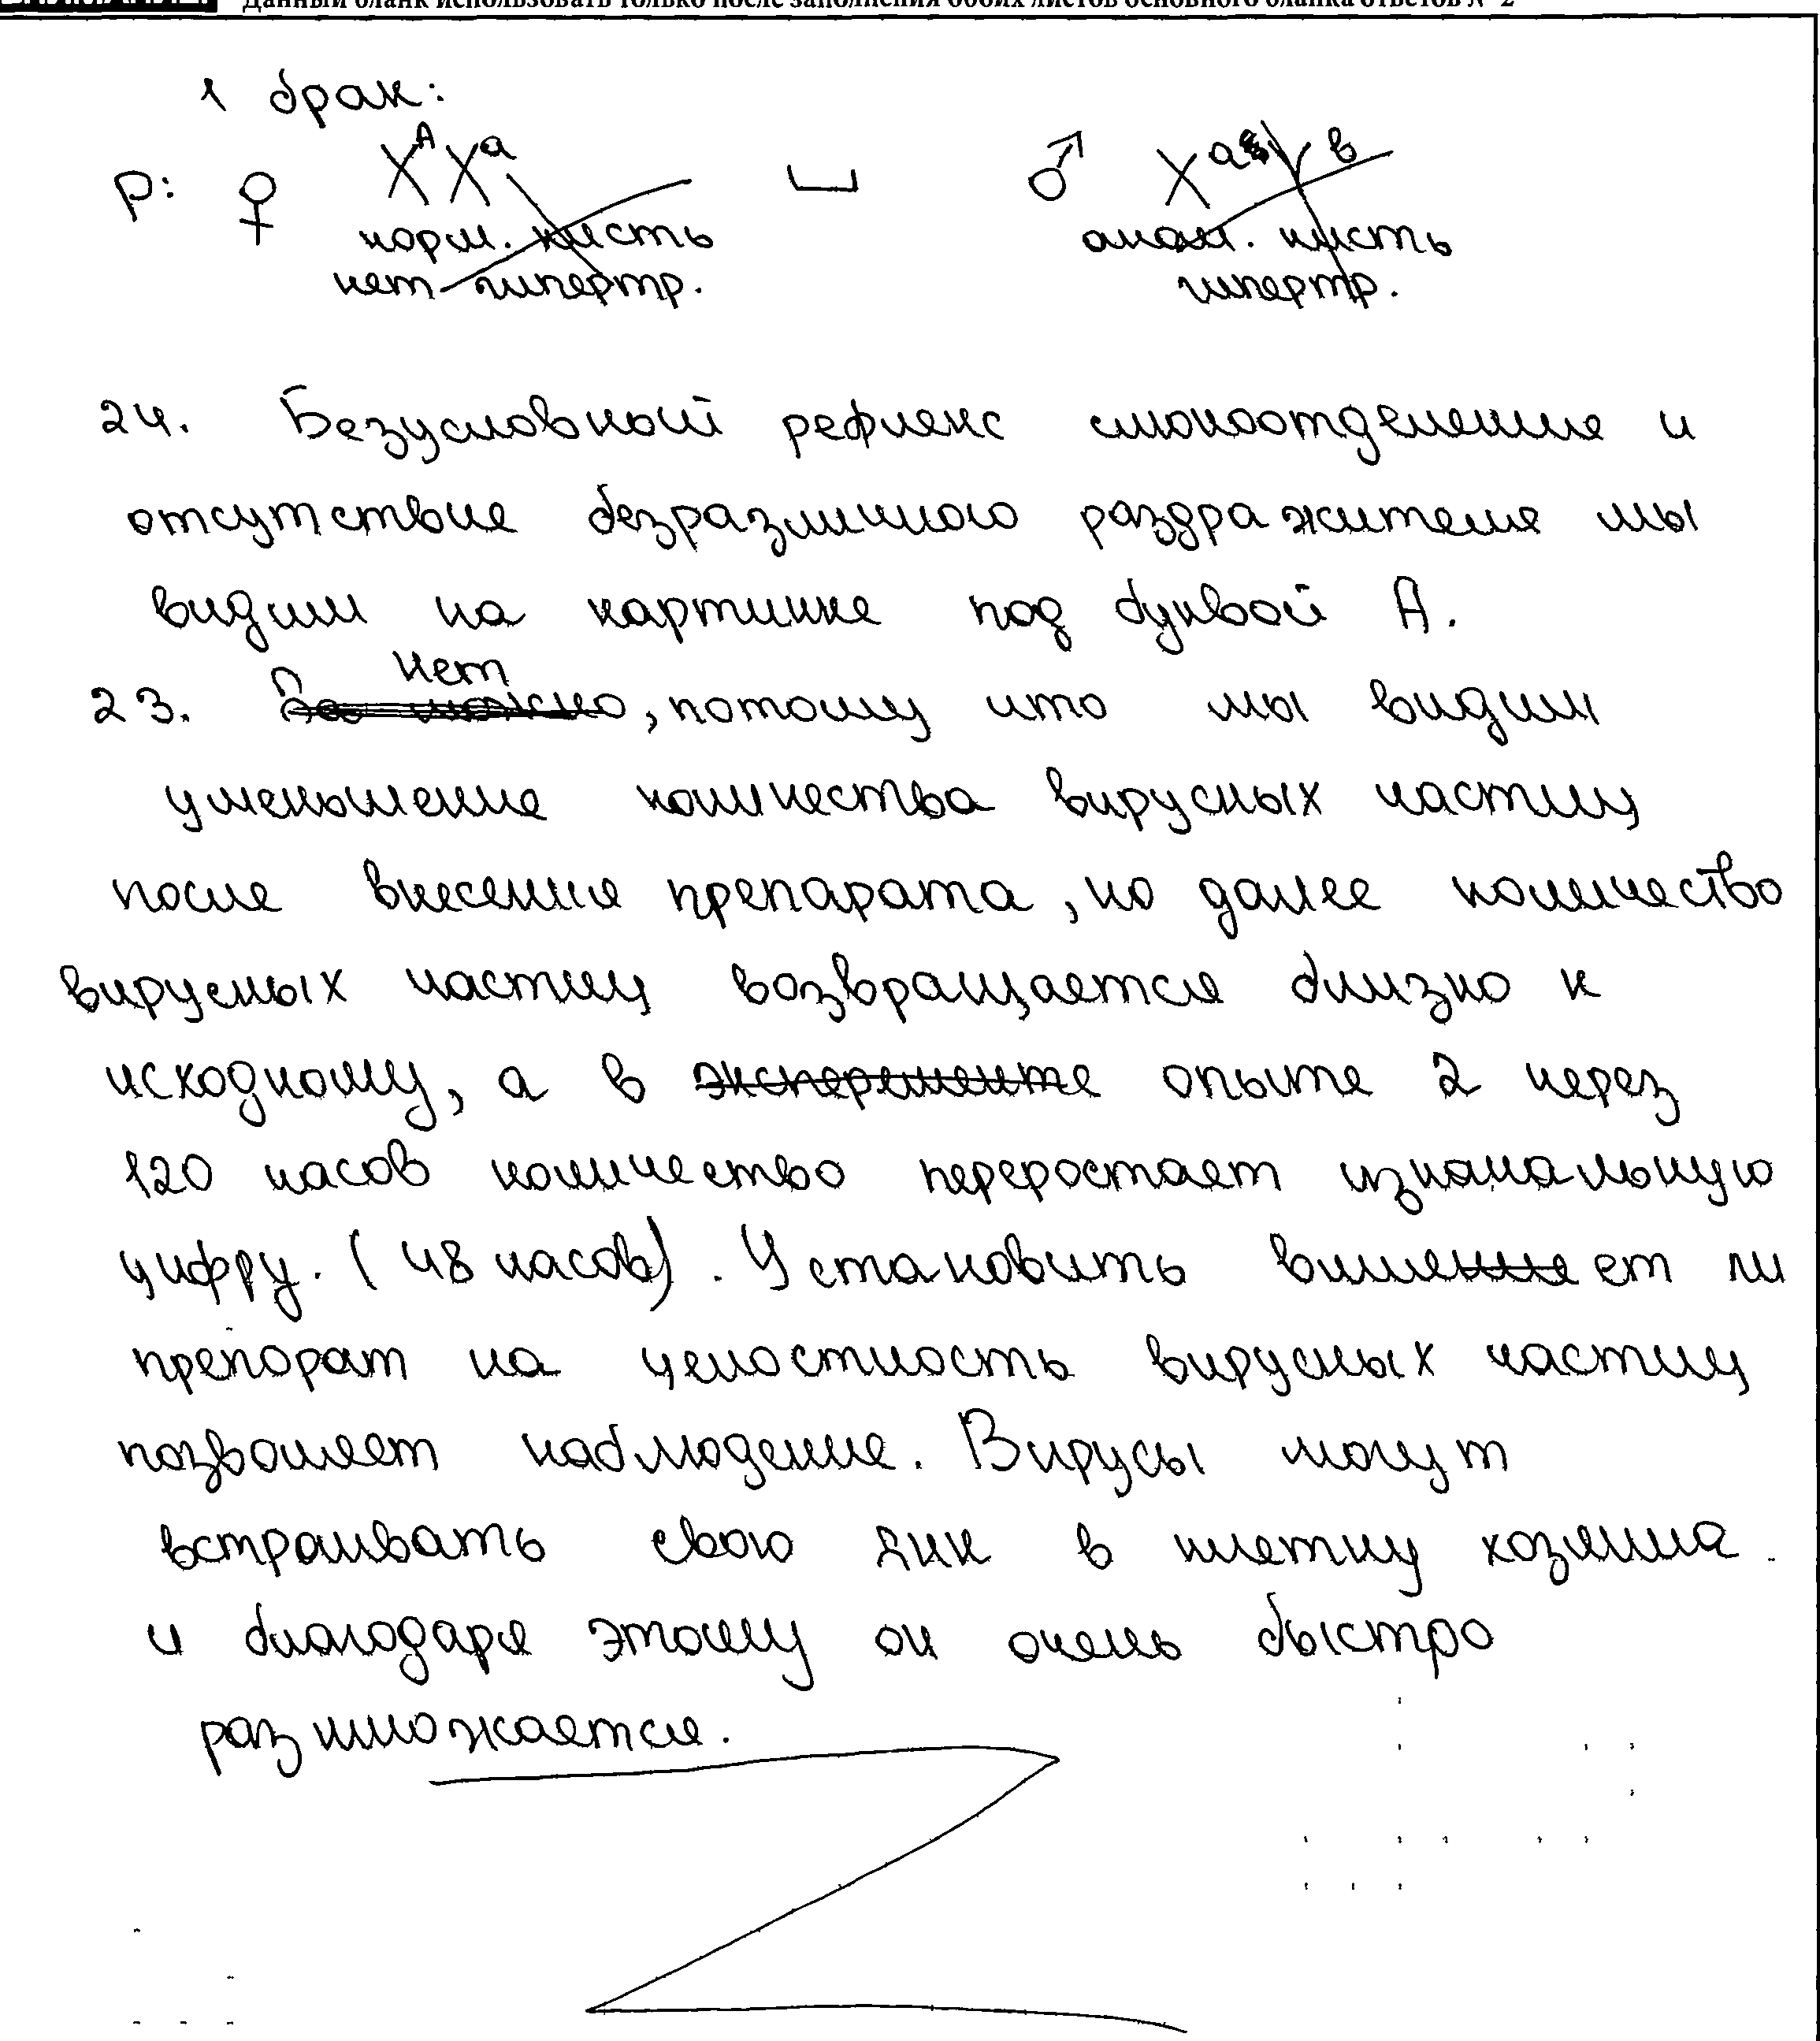 Данный бланк использовать только после заполнения обоих листов основного бланка ответов № 2
1 брак:
р: ♀ XᴬXᵃ ♂ Xᵃ Yᵇ
норм. кисть аном. кисть
нет гипертр. гипертр.
24. Безусловный рефлекс слюноотделение и
отсутствие безразличного раздражителя мы
видим на картинке под буквой А.
нет
23. Да можно, потому что мы видим
уменьшение количества вирусных частиц
после внесения препарата, но далее количество
вирусных частиц возвращается близко к
исходному, а в эксперементе опыте 2 через
120 часов количество переростает изначальную
цифру. (48 часов). Установить влияет ли
препорат на целостность вирусных частиц
позволяет наблюдение. Вирусы могут
встраивать свою ДНК в клетку хозяина
и благодаря этому он очень быстро
размножается.